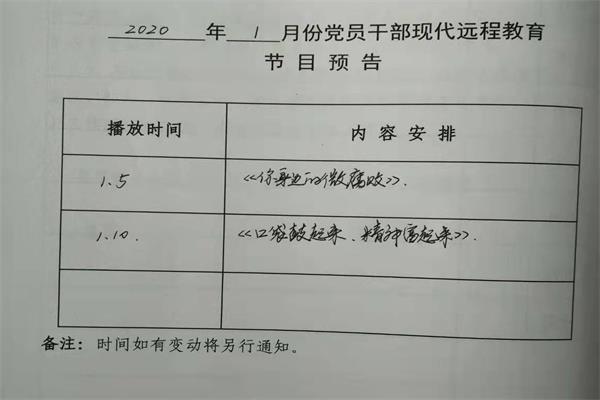 2020 年 1 月份党员干部现代远程教育
节目预告
播放时间 内容安排
1.5 《你身边的微腐败》.
1.10. 《口袋鼓起来、精神富起来》.
备注：时间如有变动将另行通知。